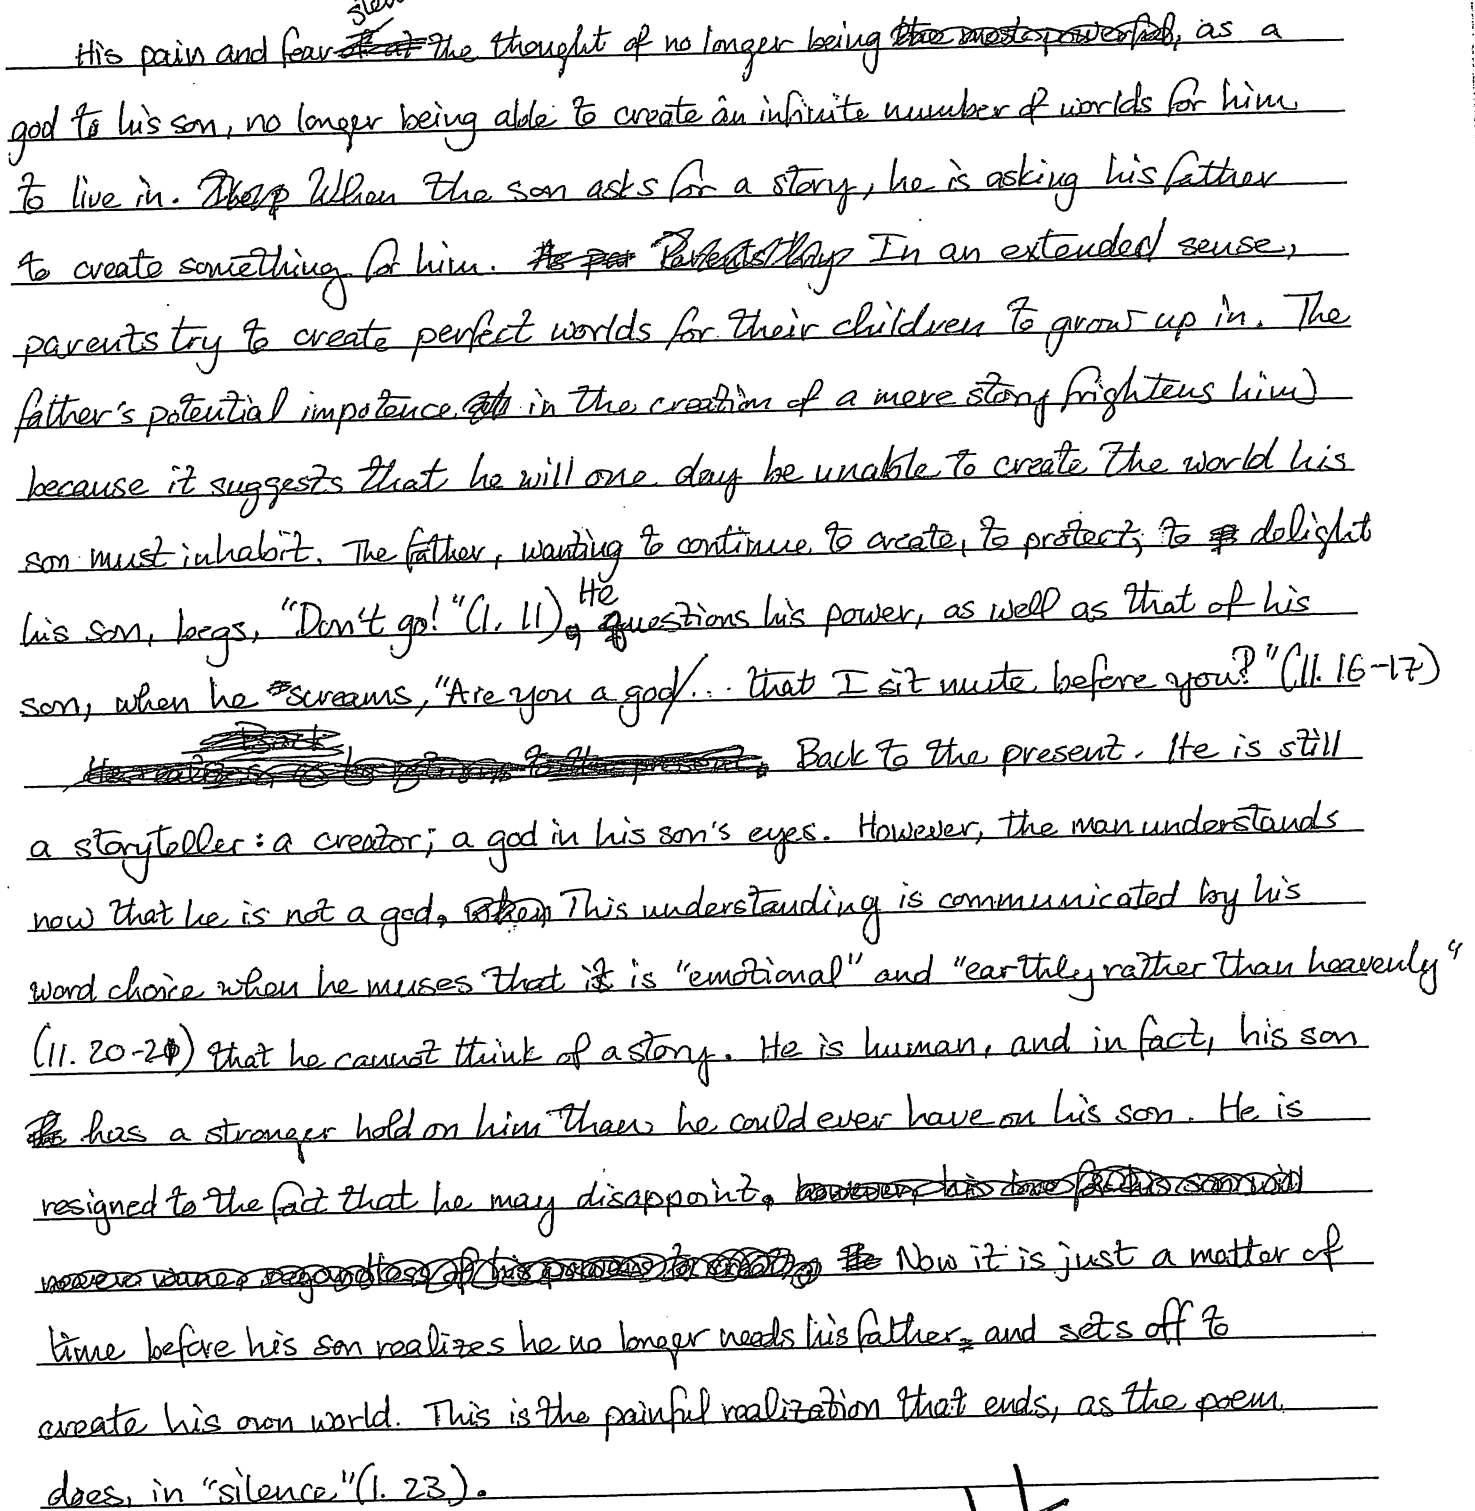 stem
His pain and fear the thought of no longer being as a
god to his son, no longer being able to create an infinite number of worlds for him
to live in. When the son asks for a story, he is asking his father
to create something for him. In an extended sense,
parents try to create perfect worlds for their children to grow up in. The
father's potential impotence in the creation of a mere story frightens him
because it suggests that he will one day be unable to create the world his
son must inhabit. The father, wanting to continue to create, to protect, to delight
his son, begs, "Don't go!" (l. 11). He questions his power, as well as that of his
son, when he screams, "Are you a god/... that I sit mute before you?" (ll. 16-17)
Back to the present. He is still
a storyteller: a creator; a god in his son's eyes. However, the man understands
now that he is not a god. This understanding is communicated by his
word choice when he muses that it is "emotional" and "earthly rather than heavenly"
(ll. 20-21) that he cannot think of a story. He is human, and in fact, his son
has a stronger hold on him than he could ever have on his son. He is
resigned to the fact that he may disappoint.
Now it is just a matter of
time before his son realizes he no longer needs his father, and sets off to
create his own world. This is the painful realization that ends, as the poem
does, in "silence" (l. 23).